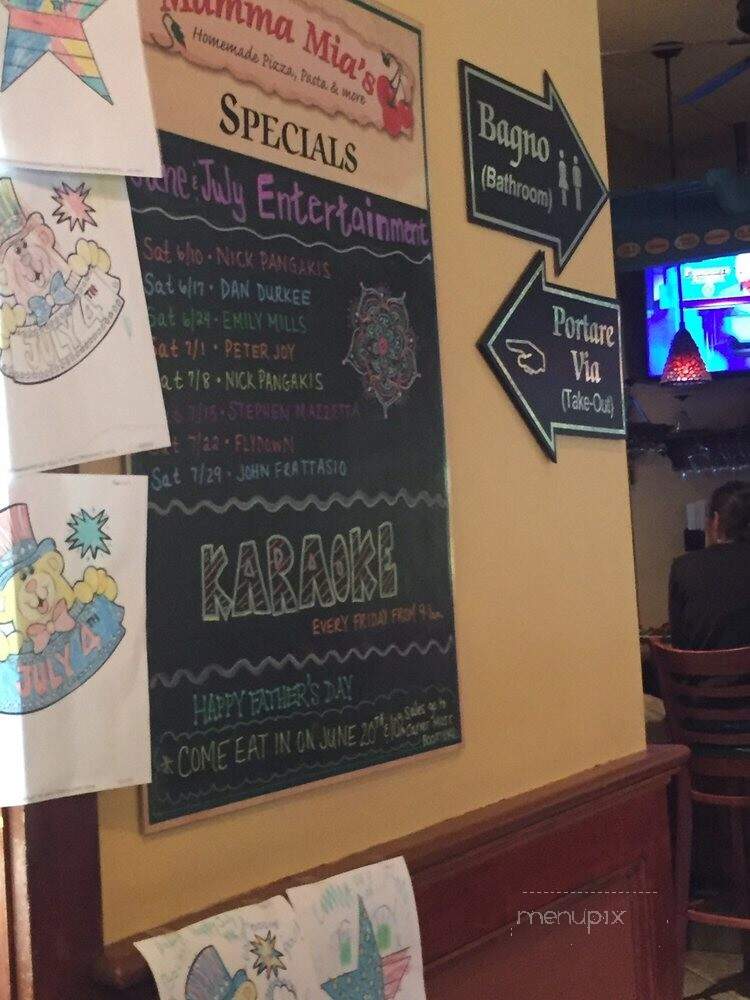 Mamma Mia's
Homemade Pizza, Pasta & more
SPECIALS
June & July Entertainment
Sat 6/10 • NICK PANGAKIS
Sat 6/17 • DAN DURKEE
Sat 6/24 • EMILY MILLS
Sat 7/1 • PETER JOY
Sat 7/8 • NICK PANGAKIS
Sat 7/15 • STEPHEN MAZZETTA
Sat 7/22 • FLYDOWN
Sat 7/29 • JOHN FRATTASIO
KARAOKE
EVERY FRIDAY FROM 9-1am
HAPPY FATHER'S DAY
* COME EAT IN ON JUNE 20TH
Sales go to
Carver Music
Bagno
(Bathroom)
Portare
Via
(Take-Out)
JULY 4TH
JULY 4TH
menupix